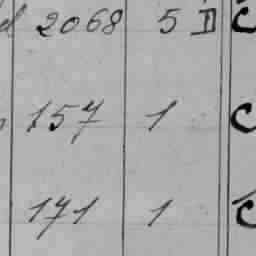 2068 5 D C
157 1 C
171 1 C